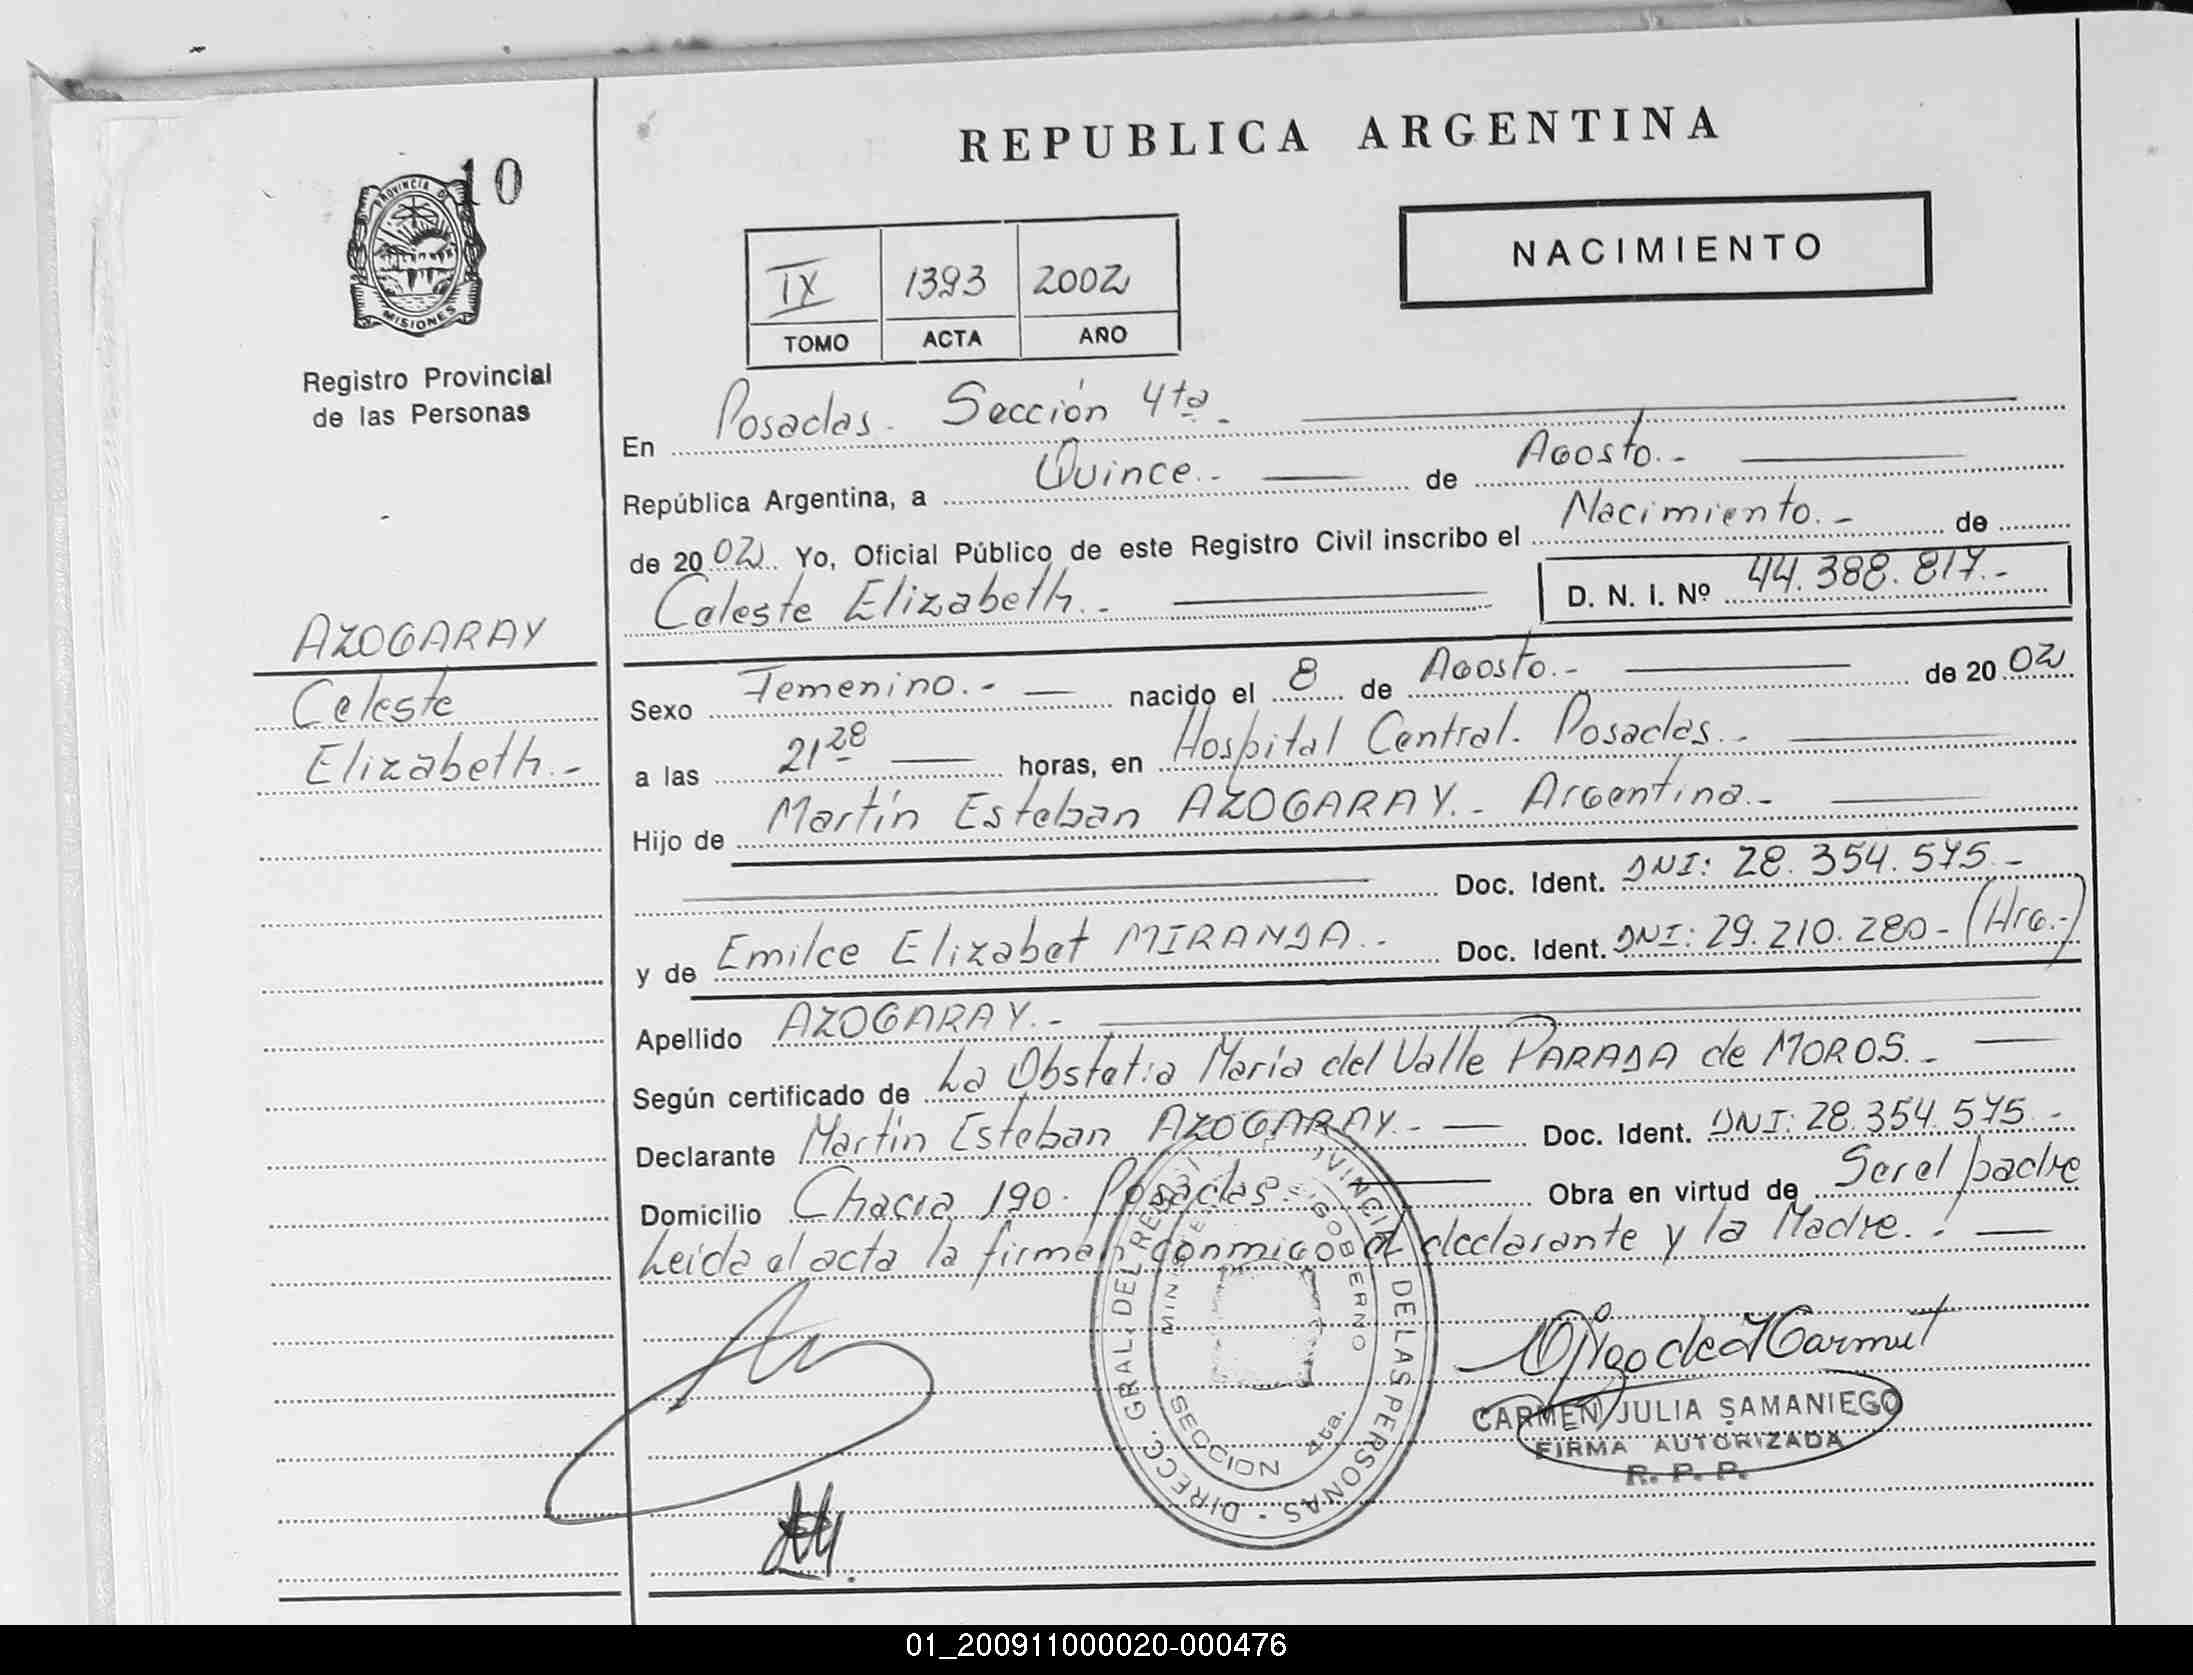 10
PROVINCIA DE
MISIONES
Registro Provincial
de las Personas
AZOGARAY
Celeste
Elizabeth.-
REPUBLICA ARGENTINA
NACIMIENTO
IX 1393 2002
TOMO ACTA AÑO
En Posadas. Sección 4ta.
República Argentina, a Quince.- de Agosto.-
de 2002. Yo, Oficial Público de este Registro Civil inscribo el Nacimiento.- de
Celeste Elizabeth.- D. N. I. Nº 44.388.817.-
Sexo Femenino.- nacido el 8 de Agosto.- de 2002
a las 21 28 horas, en Hospital Central. Posadas.-
Hijo de Martín Esteban AZOGARAY.- Argentina.-
Doc. Ident. DNI: 28.354.575.-
y de Emilce Elizabet MIRANDA.- Doc. Ident. DNI: 29.210.280- (Arg.-)
Apellido AZOGARAY.-
Según certificado de La Obstet.a María del Valle PARADA de MOROS.-
Declarante Martín Esteban AZOGARAY.- Doc. Ident. DNI: 28.354.575.-
Domicilio Chacra 190. Posadas. Obra en virtud de Ser el padre
Leida el acta la firman conmigo el declarante y la Madre.-
DIRECC. GRAL. DEL REG. PROVINCIAL DE LAS PERSONAS
MINISTERIO GOBIERNO
SECCION 4ta.
CARMEN JULIA SAMANIEGO
FIRMA AUTORIZADA
R. P. P.
01_200911000020-000476